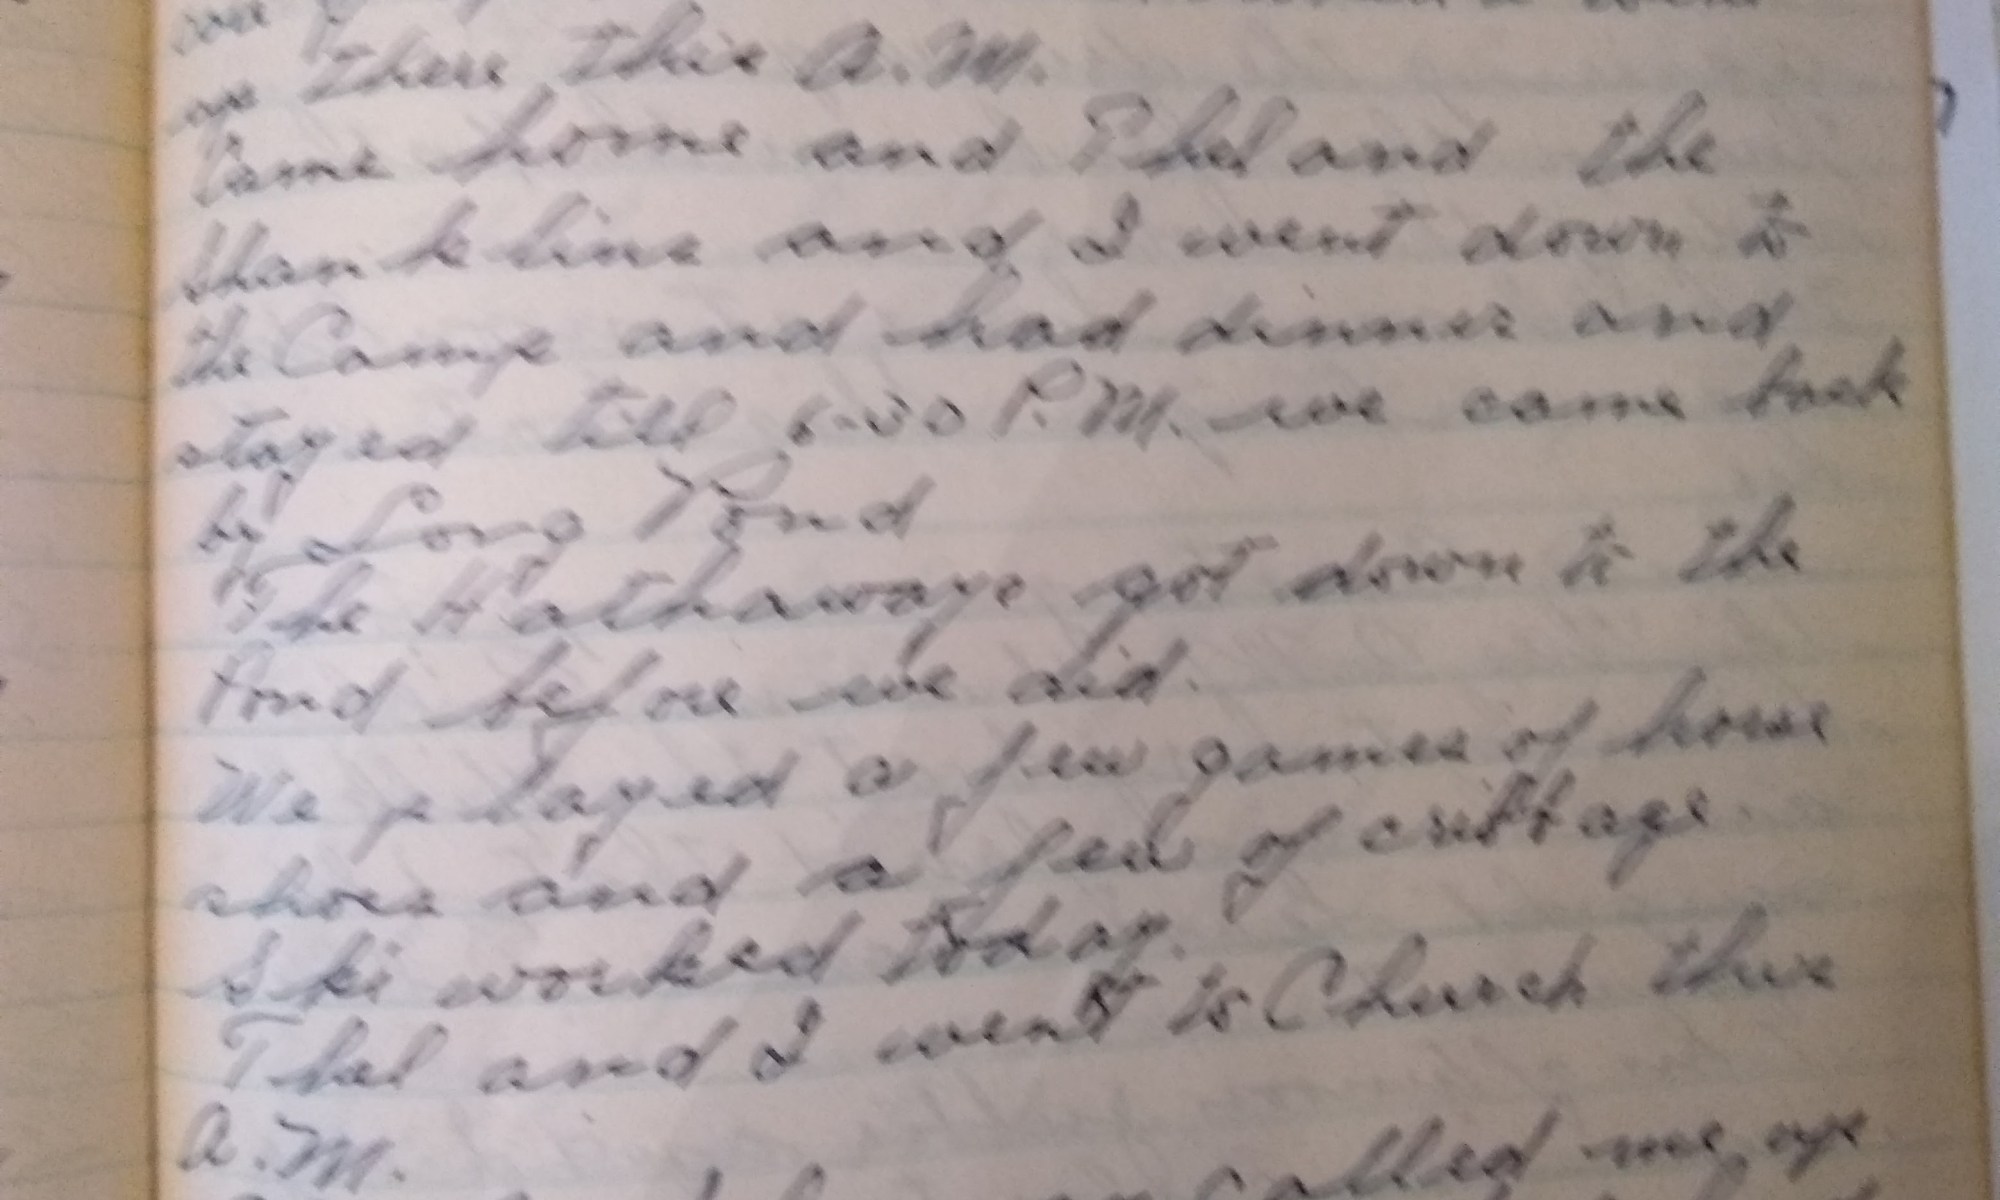 up there this A.M.
Came home and Thel and the
Shanklins and I went down to
the Camp and had dinner and
stayed till 6-30 P.M. we came back
by Long Pond
The Hathaways got down to the
Pond before we did.
We played a few games of horse
shoes and a few of cribbage.
Ski worked today.
Thel and I went to Church this
A.M.
called me up